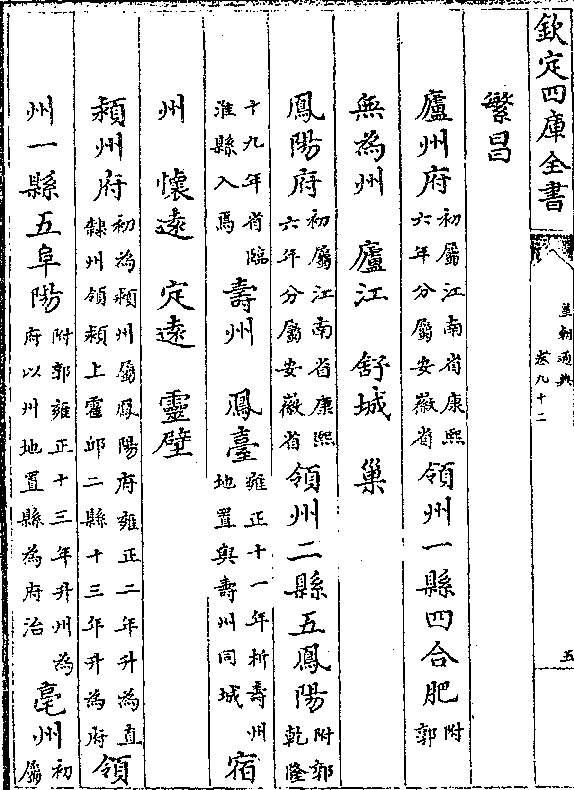 欽定四庫全書
皇朝通典
卷九十二
五
繁昌
廬州府初屬江南省康熙六年分屬安徽省領州一縣四合肥附郭
無為州 廬江 舒城 巢
鳳陽府初屬江南省康熙六年分屬安徽省領州二縣五鳳陽附郭乾隆
十九年省臨淮縣入焉 壽州 鳳臺雍正十一年析壽州地置與壽州同城 宿
州 懷遠 定遠 靈壁
潁州府初為潁州屬鳳陽府雍正二年升為直隸州領潁上霍邱二縣十三年升為府領
州一縣五阜陽附郭雍正十三年升州為府以州地置縣為府治 亳州初屬